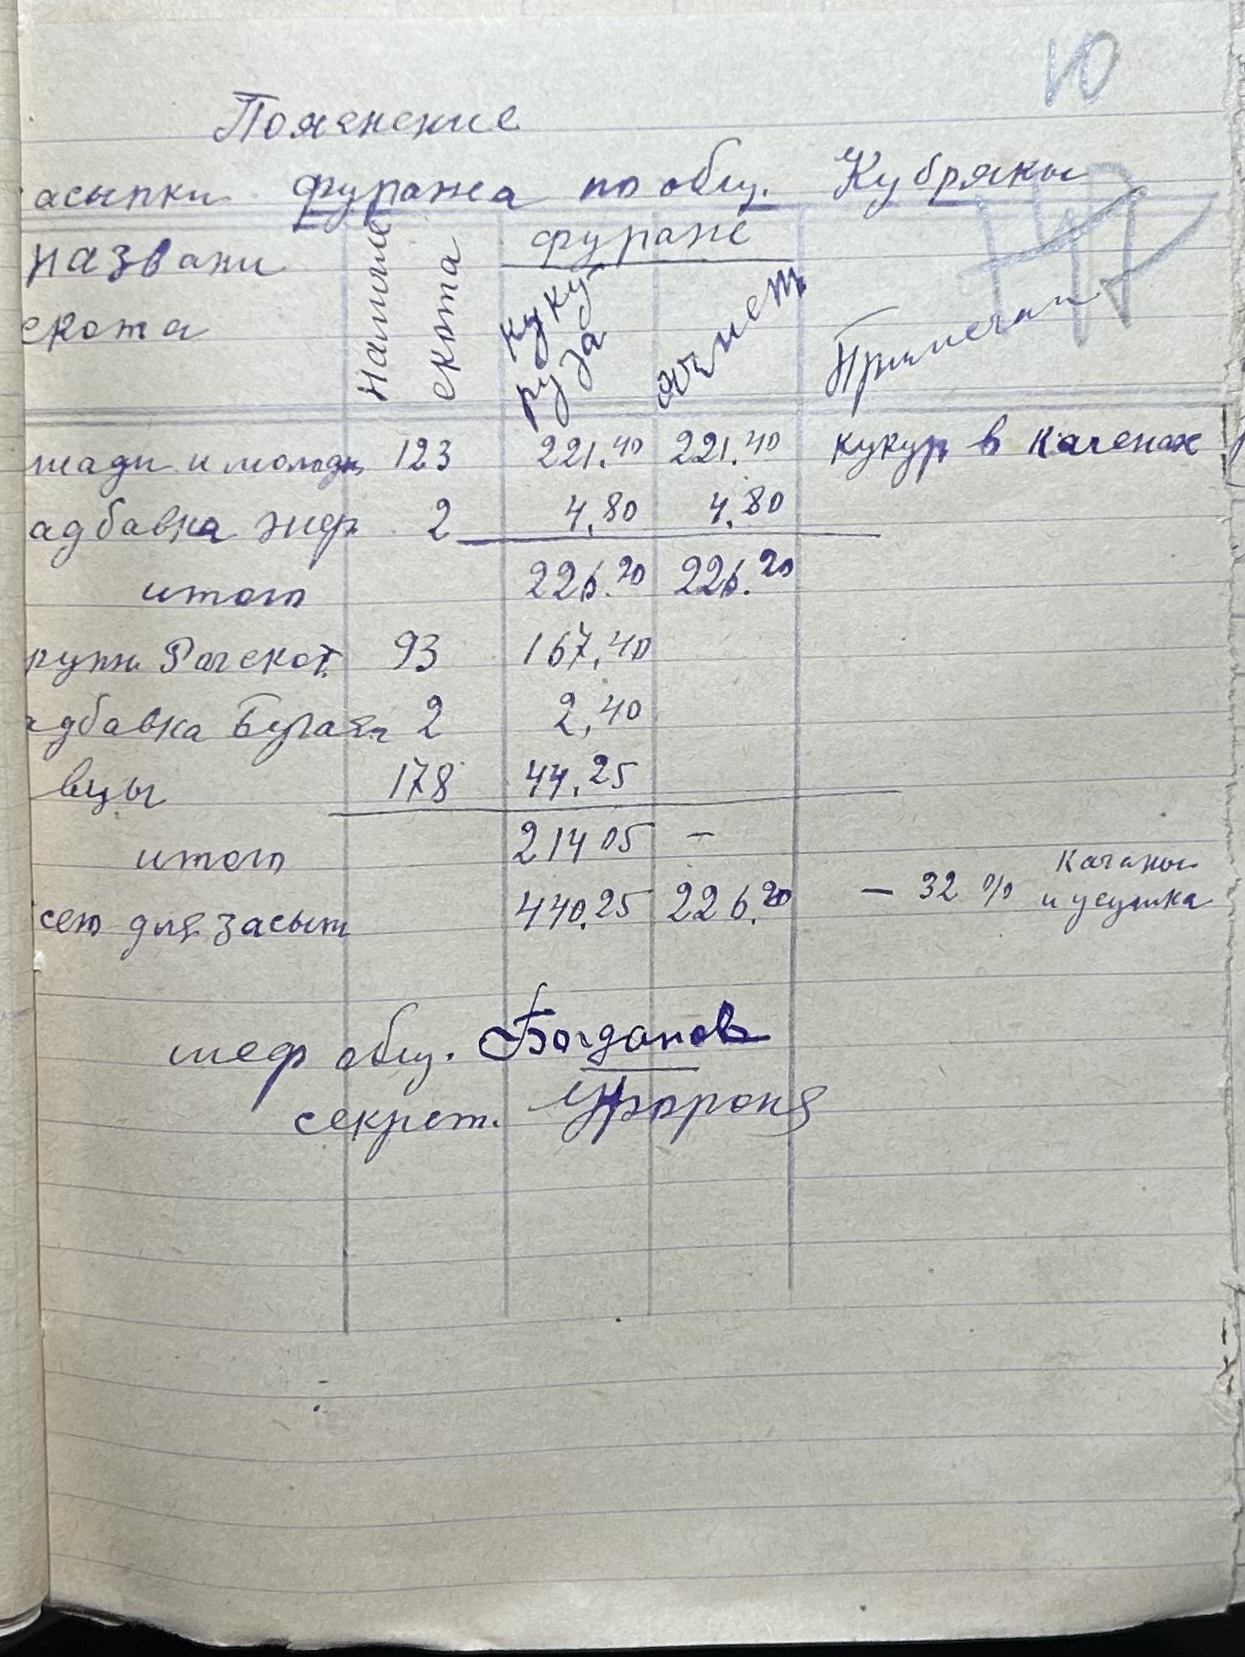 10
Пояснение
асыпки фуража по общ. Кубряны
названи наличие скота фураже
скота кукуруза ячмень Примечан
шади и молодн 123 221.40 221.40 кукур в каченах
адбавка жер 2 4,80 4,80
итого 226.20 226.20
рупн Рог скот. 93 167,40
адбавка Бугаям 2 2,40
вцы 178 44.25
итого 214 05 –
сего для засып 440.25 226.20 – 32 % качаны и усушка
шеф общ. Богданов
секрет.